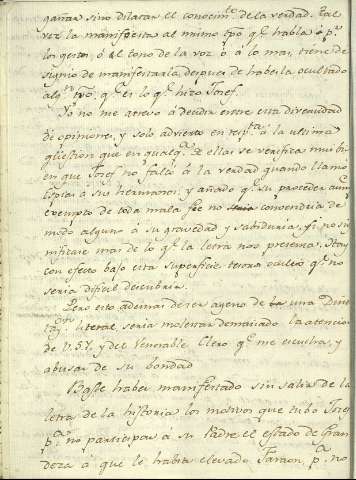 gañar sino dilatar el conocim.to de la verdad. Tal
vez la manifiesta al mismo tpô q.e habla ô p.r
los gestos, ô al tono de la voz ô â lo mas, tiene de-
signio de manifestarla, despues de haberla ocultado
alg.n tpô, q.e es lo q.e hizo Josef.
Yo no me atrevo â decidir entre esta diversidad
de opiniones, y solo advierto en resp.ta â la ultima
qüestion que en qualq.a de ellas se verifica mui bien
en que Josef no faltó â la verdad quando llamó
Espias â sus hermanos; y añado q.e su proceder aun
exempto de toda mala fee no convendria de
modo alguno â su gravedad y sabiduria, si no sig-
nificase mas de lo q.e la letra nos presenta. Hay
con efecto bajo esta superficie tesoro oculto q.e no
seria dificil descubrir.
Pero esto ademas de ser ageno de una
literal seria molestar demasiado la atencion
de V.S.Y. y del Venerable Clero q.e me escucha, y
abusar de su bondad
Baste haber manifestado sin salir de la
letra de la historia los motivos que tubo Josef
p.a no participar â su Padre el estado de Gran
deza â que le habia elevado Faraon, p.a no